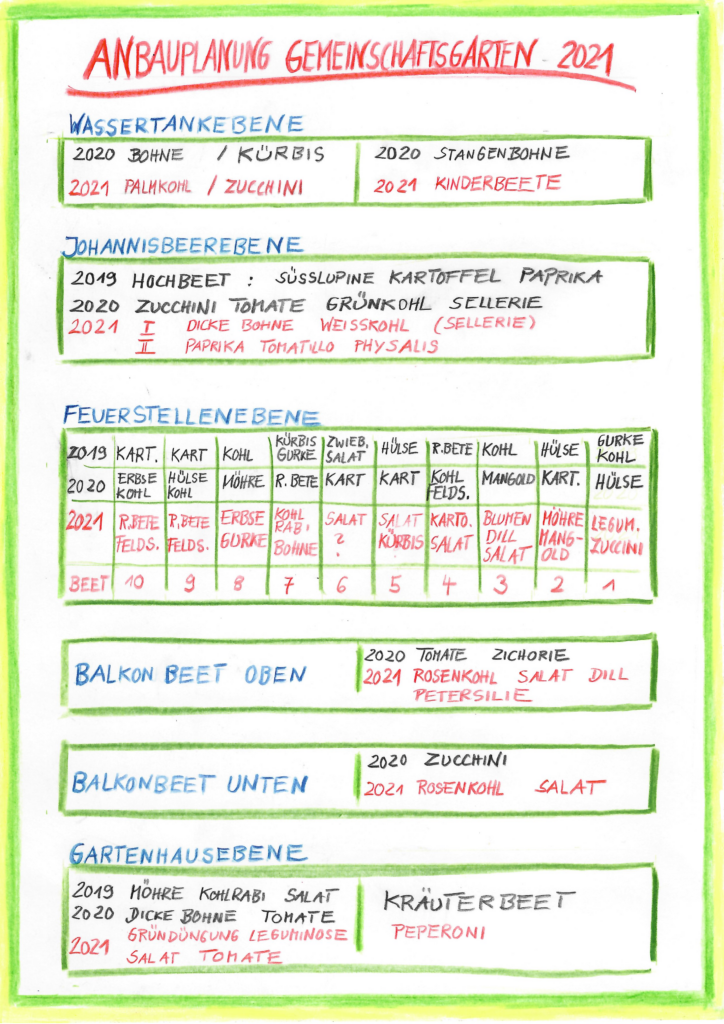 ANBAUPLANUNG GEMEINSCHAFTSGÄRTEN 2021
WASSERTANKEBENE
2020 BOHNE / KÜRBIS
2021 PALMKOHL / ZUCCHINI
2020 STANGENBOHNE
2021 KINDERBEETE
JOHANNISBEEREBENE
2019 HOCHBEET : SÜSSLUPINE KARTOFFEL PAPRIKA
2020 ZUCCHINI TOMATE GRÜNKOHL SELLERIE
2021 I DICKE BOHNE WEISSKOHL (SELLERIE)
II PAPRIKA TOMATILLO PHYSALIS
FEUERSTELLENEBENE
2019 KART. KART KOHL KÜRBIS GURKE ZWIEB. SALAT HÜLSE R.BETE KOHL HÜLSE GURKE KOHL
2020 ERBSE KOHL HÜLSE KOHL MÖHRE R.BETE KART KART KOHL FELDS. MANGOLD KART. HÜLSE
2021 R.BETE FELDS. R.BETE FELDS. ERBSE GURKE KOHL RABI BOHNE SALAT ? SALAT KÜRBIS KARTO. SALAT BLUMEN DILL SALAT MÖHRE MANG-OLD LEGUM. ZUCCINI
BEET 10 9 8 7 6 5 4 3 2 1
BALKON BEET OBEN
2020 TOMATE ZICHORIE
2021 ROSENKOHL SALAT DILL
PETERSILIE
BALKONBEET UNTEN
2020 ZUCCHINI
2021 ROSENKOHL SALAT
GARTENHAUSEBENE
2019 MÖHRE KOHLRABI SALAT
2020 DICKE BOHNE TOMATE
2021 GRÜNDÜNGUNG LEGUMINOSE
SALAT TOMATE
KRÄUTERBEET
PEPERONI